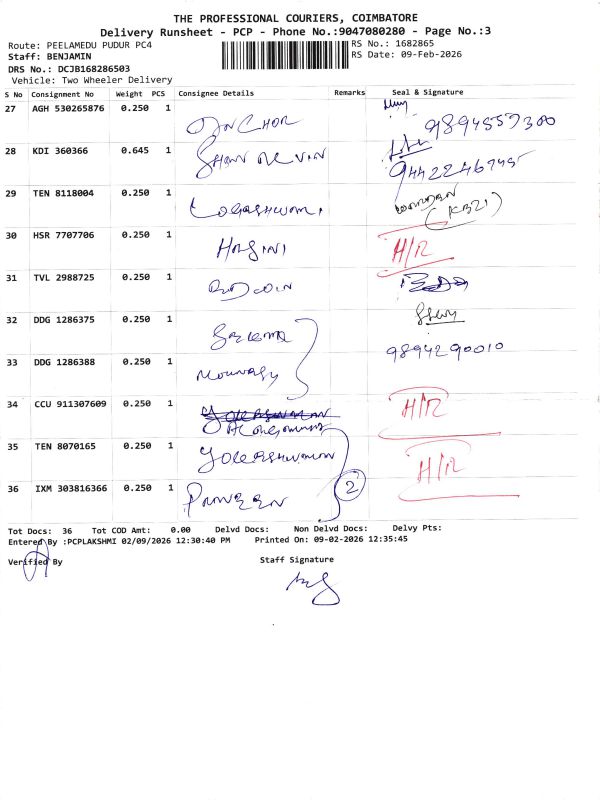 THE PROFESSIONAL COURIERS, COIMBATORE
Delivery Runsheet - PCP - Phone No.:9047080280 - Page No.:3
Route: PEELAMEDU PUDUR PC4
RS No.: 1682865
Staff: BENJAMIN
RS Date: 09-Feb-2026
DRS No.: DCJB168286503
Vehicle: Two Wheeler Delivery
S No Consignment No Weight PCS Consignee Details Remarks Seal & Signature
27 AGH 530265876 0.250 1
28 KDI 360366 0.645 1
29 TEN 8118004 0.250 1
(KB21)
30 HSR 7707706 0.250 1 HARINI H/R
31 TVL 2988725 0.250 1
32 DDG 1286375 0.250 1
33 DDG 1286388 0.250 1 9894290010
34 CCU 911307609 0.250 1 H/R
35 TEN 8070165 0.250 1 H/R
36 IXM 303816366 0.250 1 PRAVEEN 2
Tot Docs: 36 Tot COD Amt: 0.00 Delvd Docs: Non Delvd Docs: Delvy Pts:
Entered By :PCPLAKSHMI 02/09/2026 12:30:40 PM Printed On: 09-02-2026 12:35:45
Verified By Staff Signature